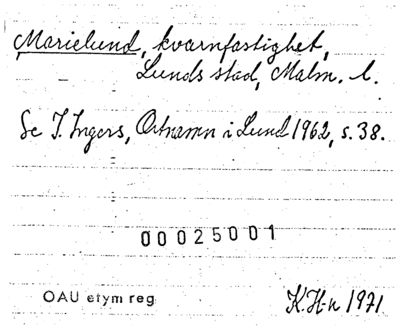 Marielund, kvarnfastighet,
Lunds stad, Malm. l.
Se I. Ingers, Ortnamn i Lund 1962, s. 38.
00025001
OAU etym reg
K.H-n 1971